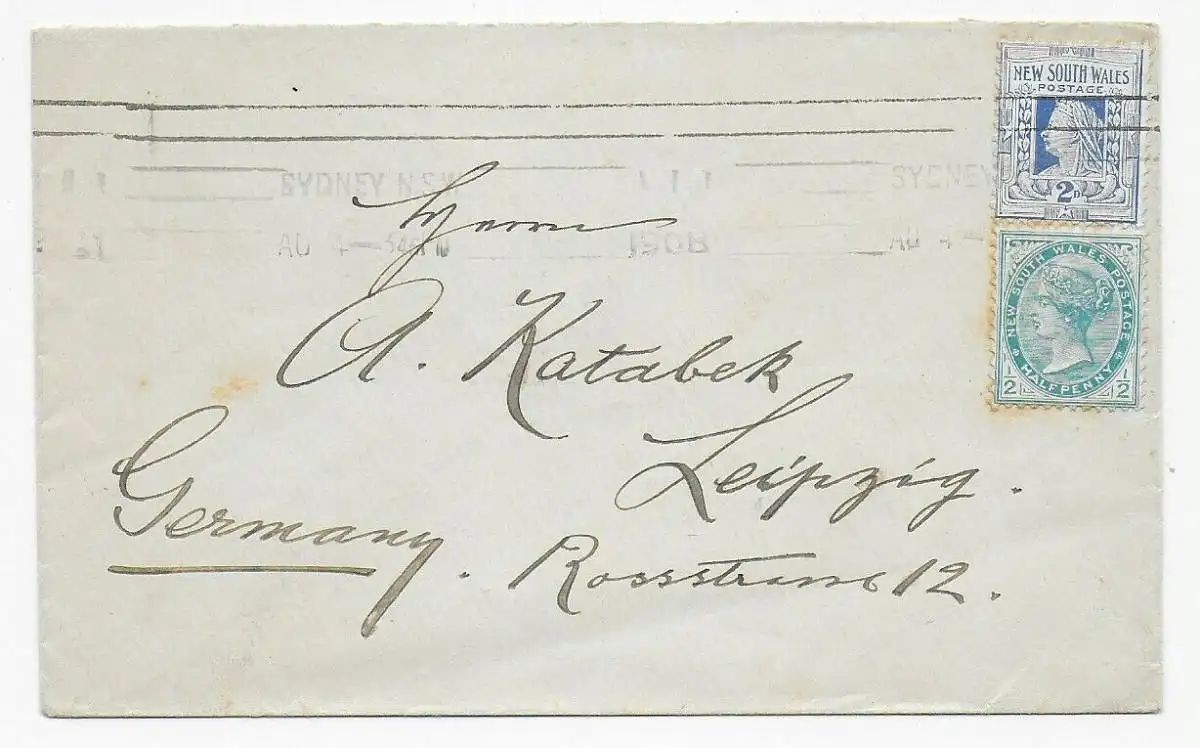 NEW SOUTH WALES
POSTAGE
2D
SYDNEY N.S.W. SYDNEY
AU 4 1908 AU 4
NEW SOUTH WALES POSTAGE
HALFPENNY
1/2 1/2
Herrn
A. Katabek
Leipzig.
Germany.
Rossstrasse 12.